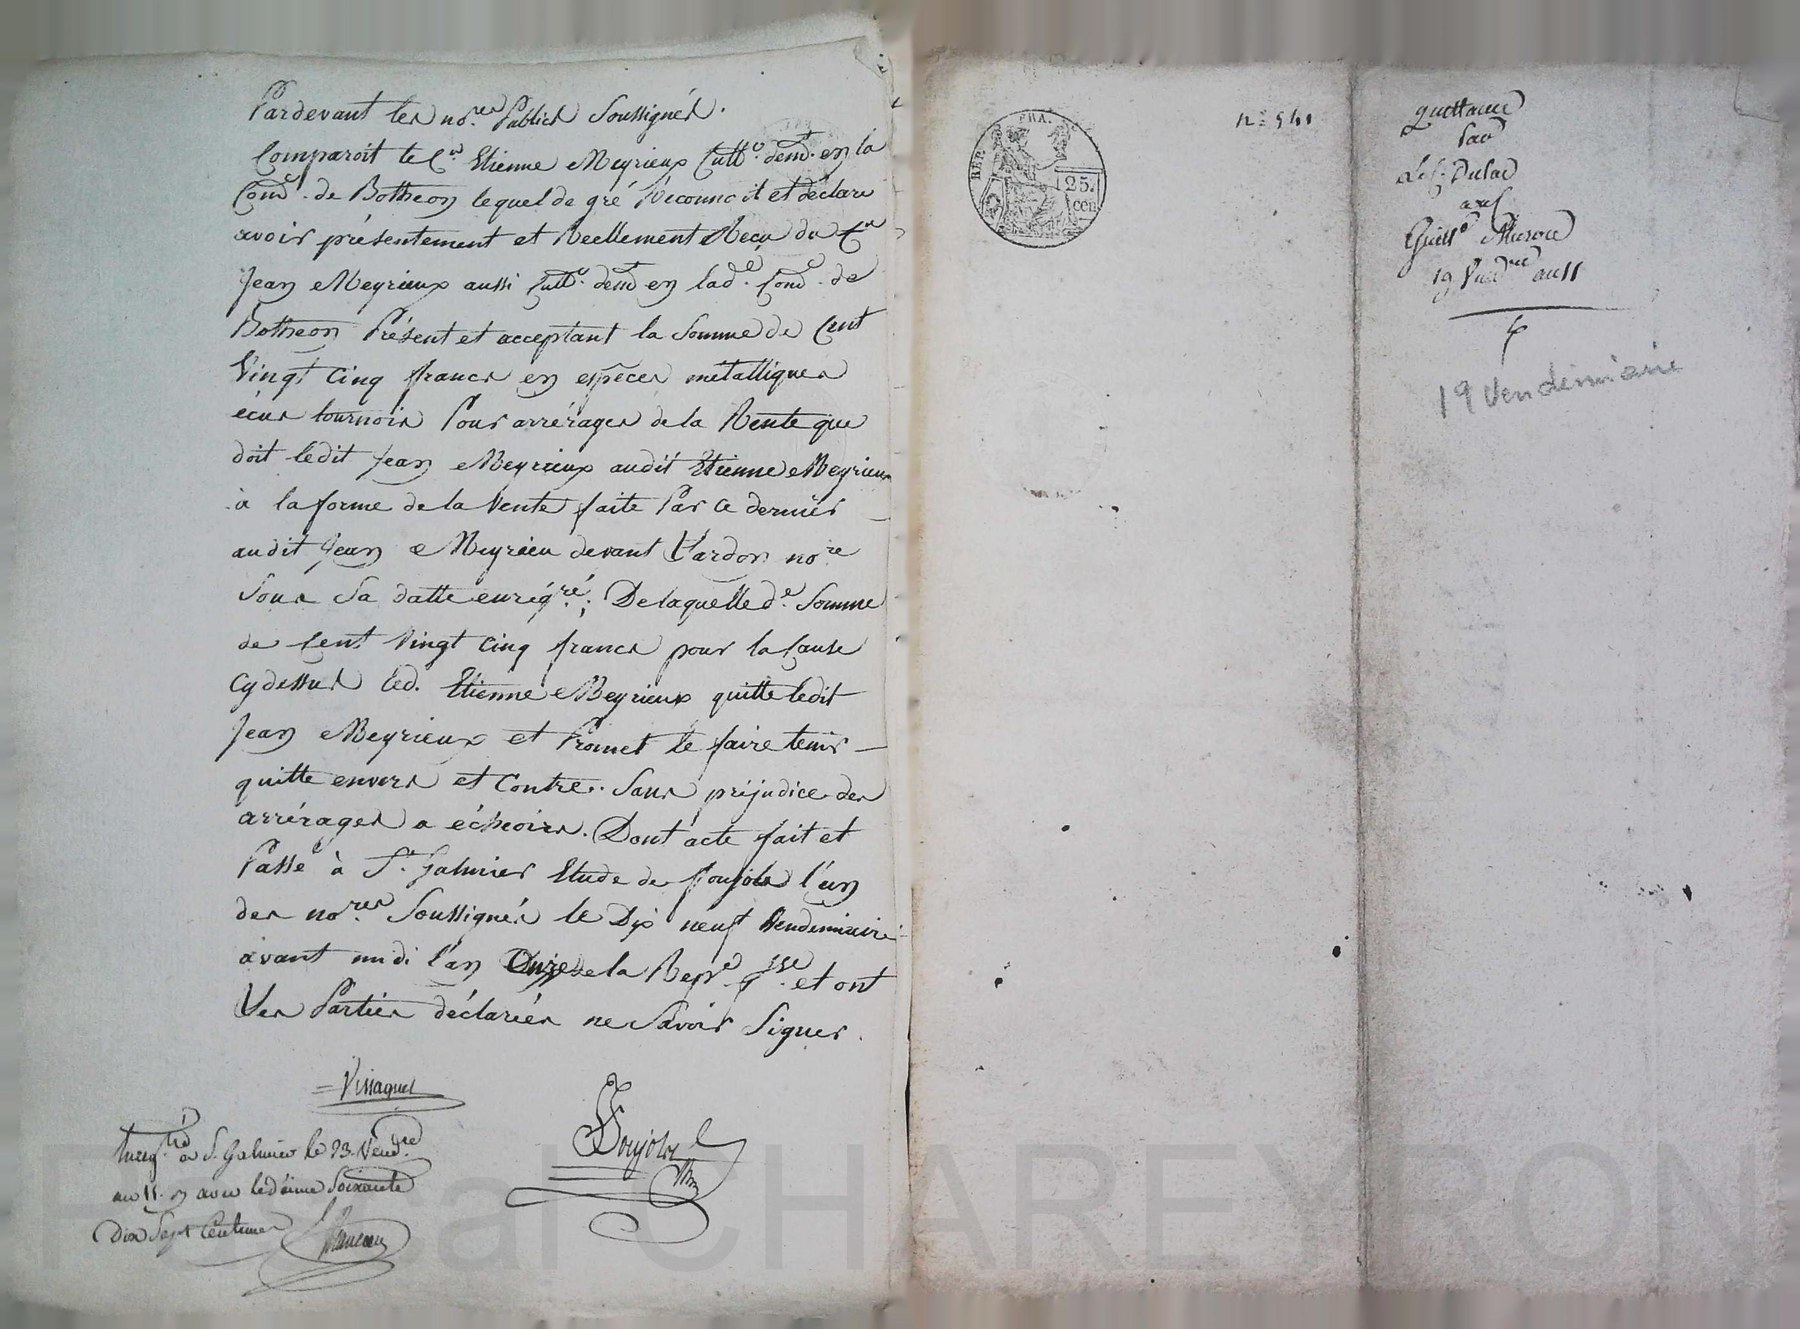 Pardevant les no.res Publics Soussignés.
Comparoit le C.n Etienne Meyrieux Cult.r demt. en la
Com.e de Botheon lequel de gré Reconnoit et déclare
avoir présentement et Reellement Reçu du C.en
Jean Meyrieux aussi Cult.r demt en lad.e Com.e de
Botheon Présent et acceptant la Somme de Cent
Vingt Cinq francs en espèces métalliques
écus tournois Pour arrérages de la Rente que
doit ledit Jean Meyrieux audit Etienne Meyrieux
à la forme de la Vente faite Par ce dernier
audit Jean Meyrieu devant Vardon no.re
Sous Sa datte enrég.ré; De laquelle d.e Somme
de Cent Vingt Cinq francs pour la Cause
Cydessus led. Etienne Meyrieux quitte ledit
Jean Meyrieux et Promet le faire tenir
quitte envers et Contre. Sans préjudice des
arrérages a échoirs. Dont acte fait et
Passé à S.t Galmier Etude de Poujols l'un
des no.res Soussignés le Dix neuf Vendemiaire
avant midi l'an Onze de la Rep.e f.se et ont
Les Parties déclarées ne Savoir Signer.
Vissaguet
Poujols
Enreg.tré a S. Galmier le 23 Vend.re
an 11. avec le décime Soixante
Dix Sept Centimes
REP. FRA.
25.
cen
n.o 541
quittance
Par
Dulac
19 Vend.re an 11
19 Vendemiaire
Pascal CHAREYRON